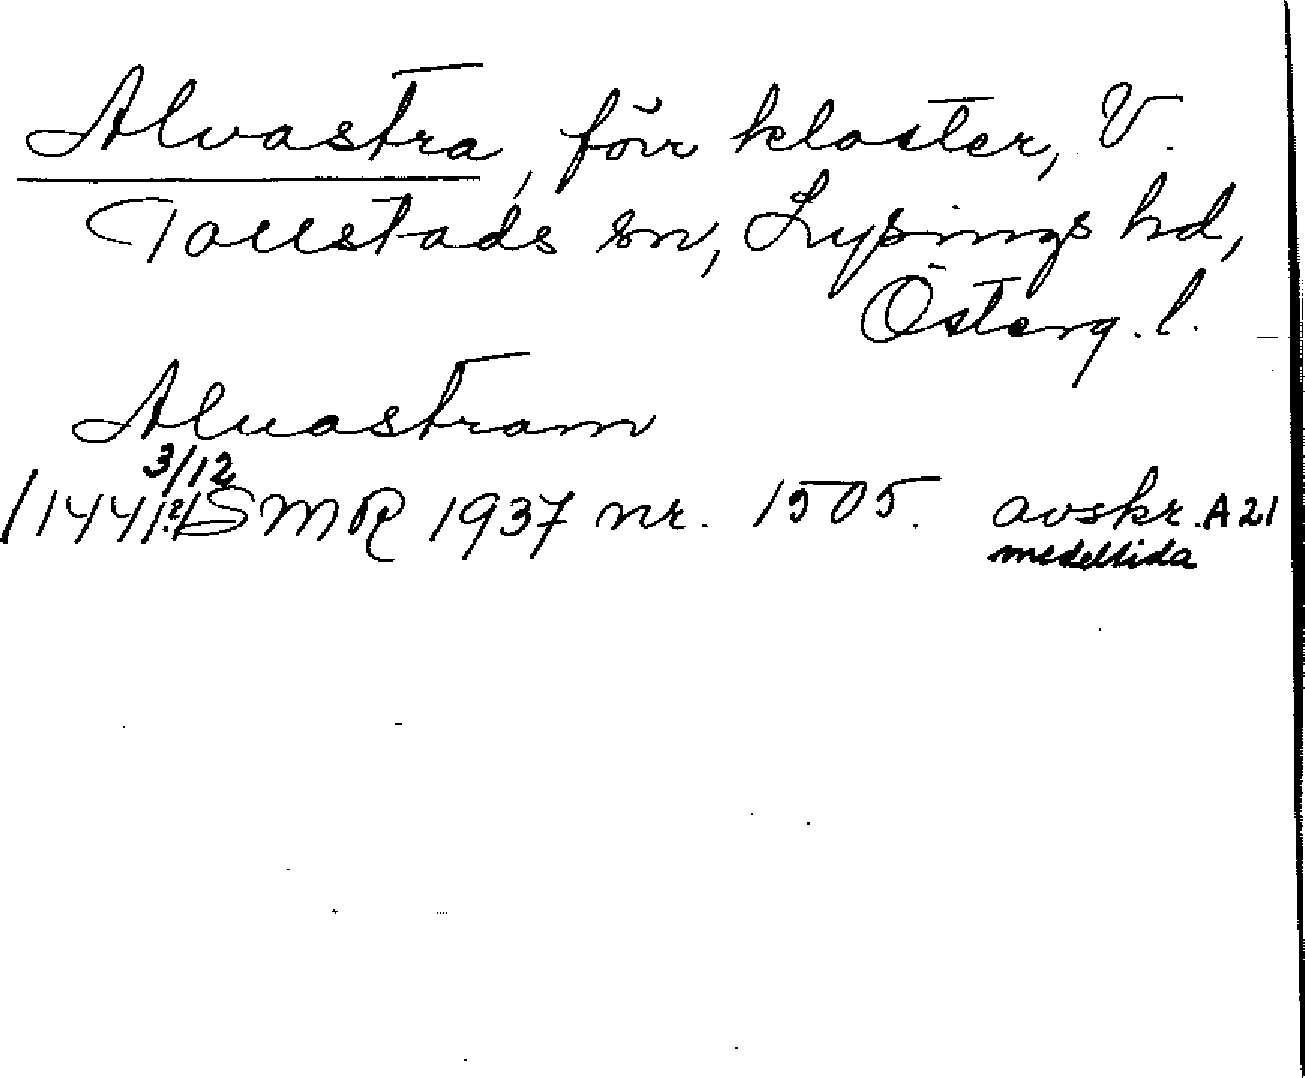 Alvastra, förr kloster, V.
Tollstads sn, Lysings hd,
Österg. l.
Aluastram
3/12
/1441(?)/ SMR 1937 nr. 1505. avskr. A 21
medeltida